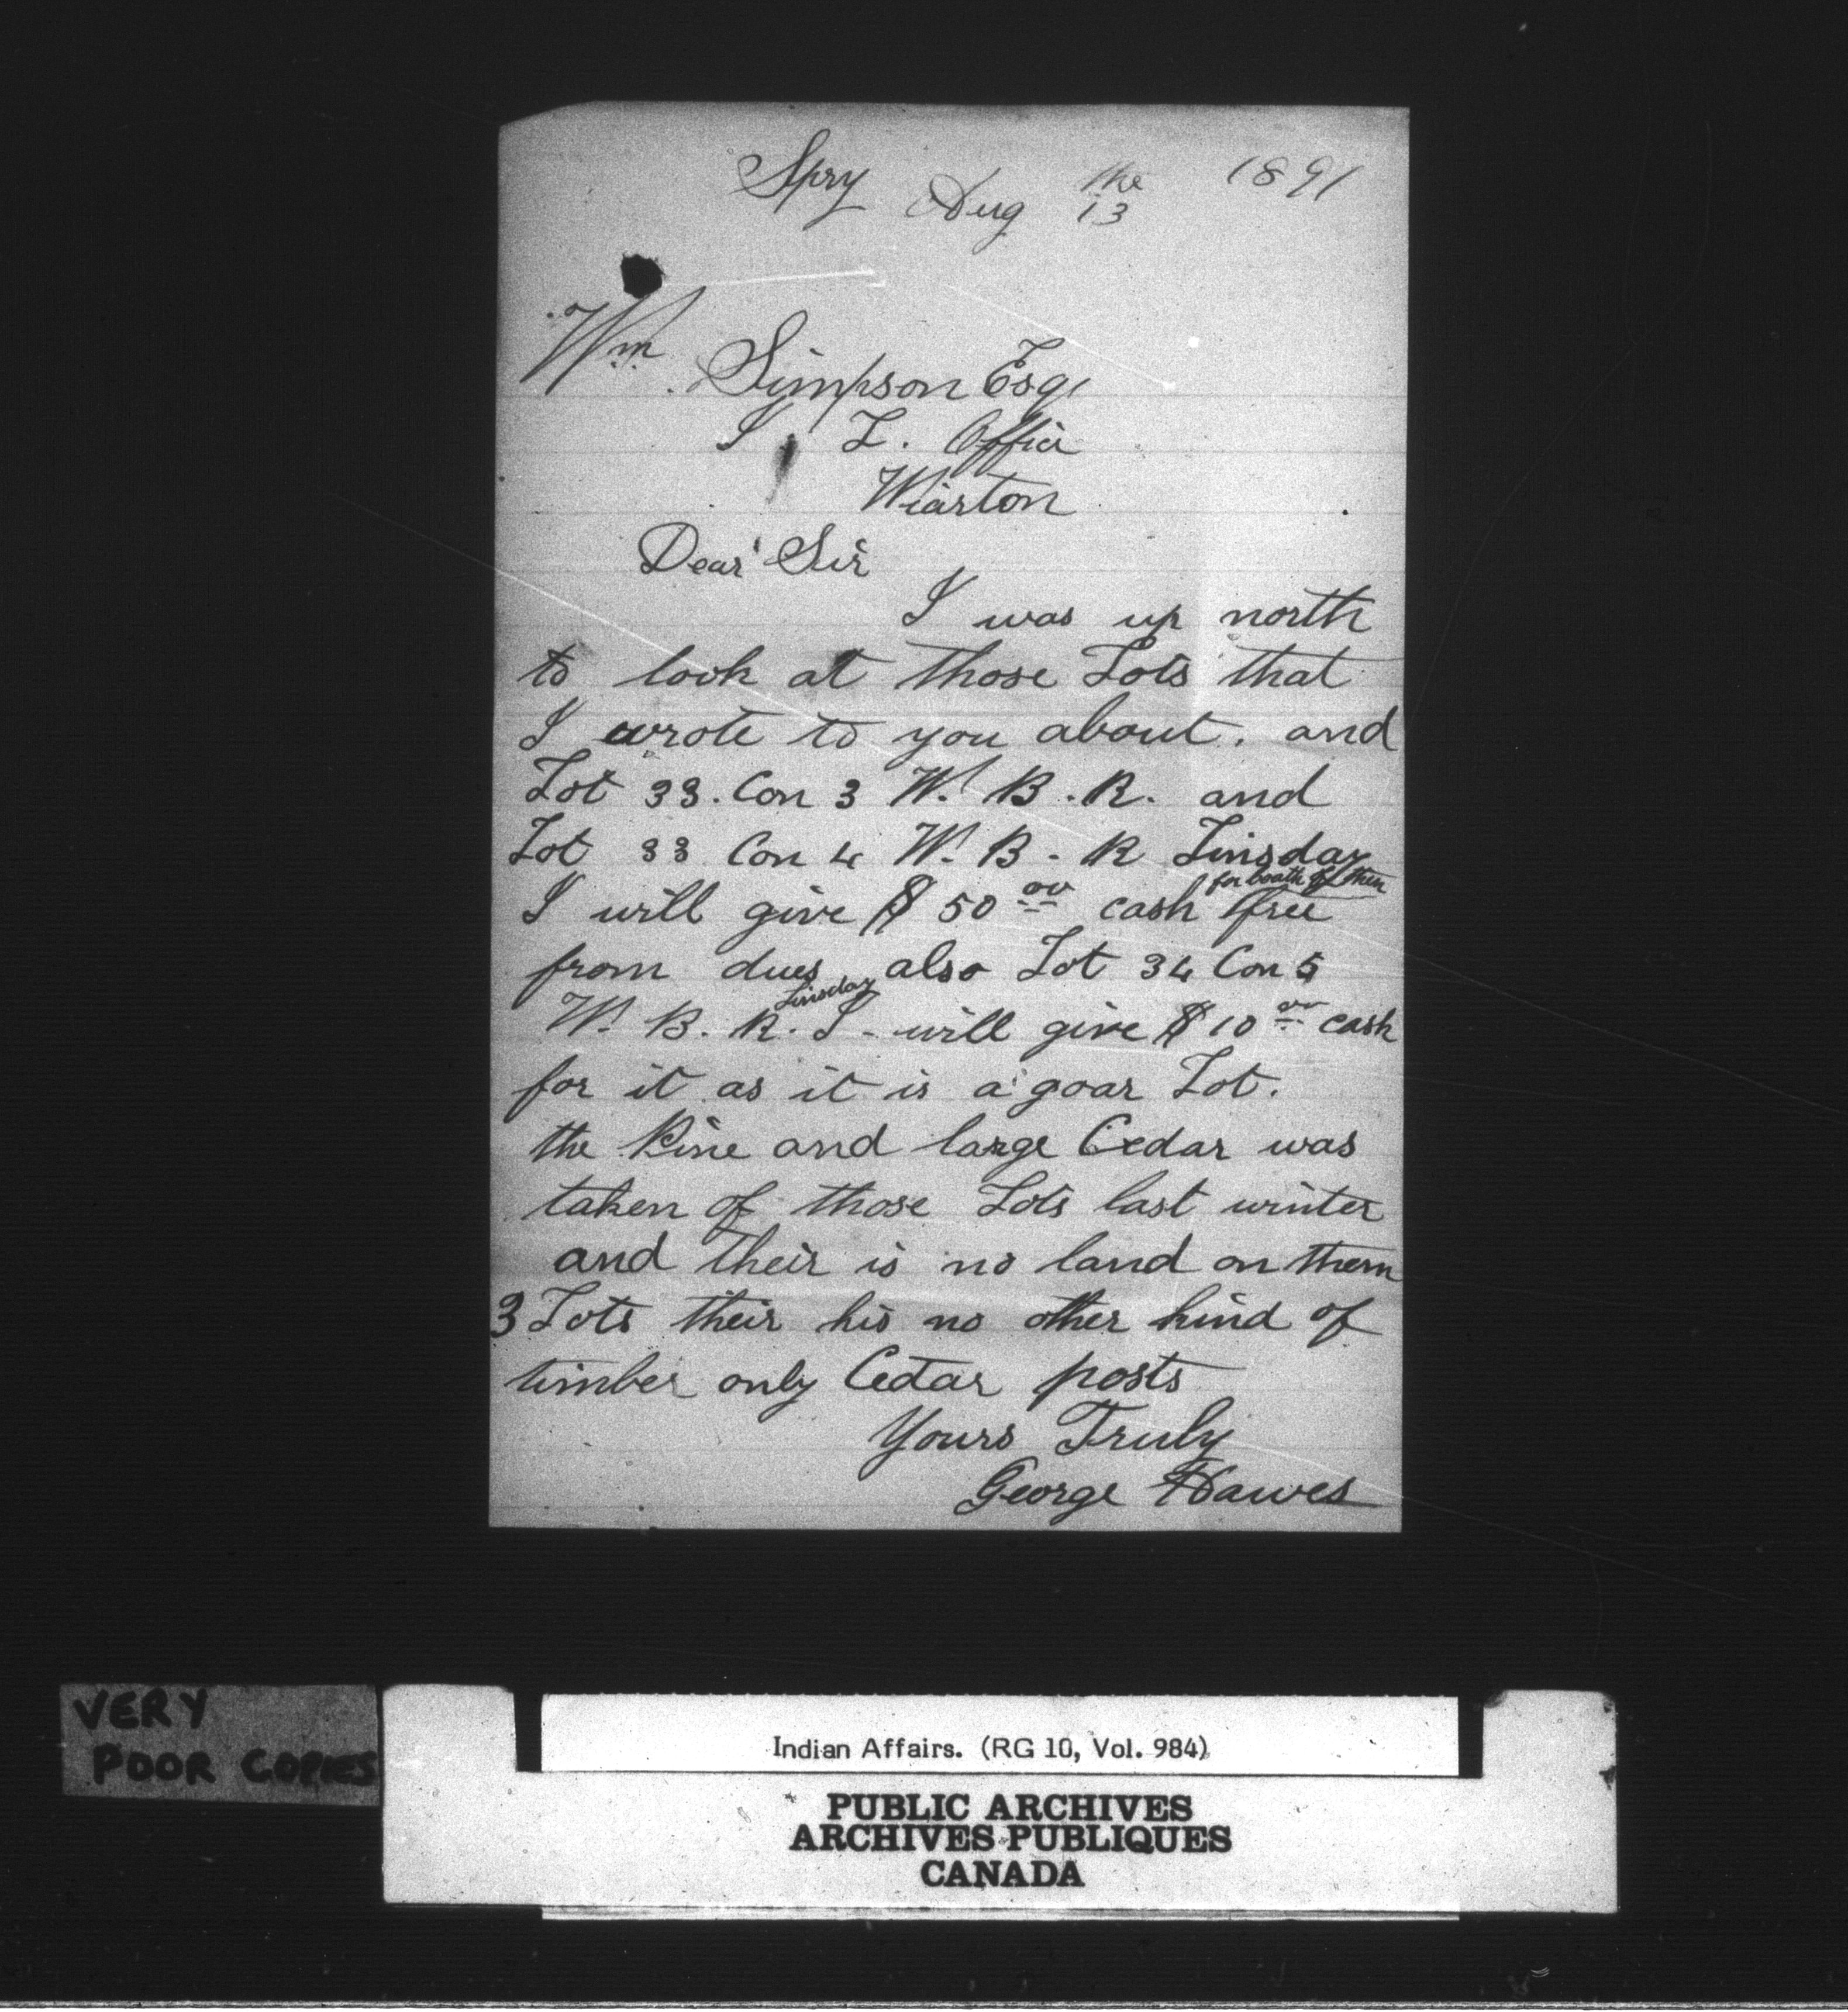 Spry Aug the 13 1891
Wm Simpson Esq
I. L. Office
Wiarton
Dear Sir
I was up north
to look at those Lots that
I wrote to you about. and
Lot 33. Con 3 W. B. R. and
Lot 33 Con 4 W. B. R Linsday
for boath of them
I will give $50 00 cash free
from dues, also Lot 34 Con 5
Linsday
W. B. R. I will give $10 00 cash
for it as it is a poar Lot.
the Pine and large Cedar was
taken of those Lots last winter
and their is no land on them
3 Lots their his no other kind of
timber only Cedar posts
Yours Truly
George Hawes
VERY
POOR COPIES
Indian Affairs. (RG 10, Vol. 984)
PUBLIC ARCHIVES
ARCHIVES PUBLIQUES
CANADA